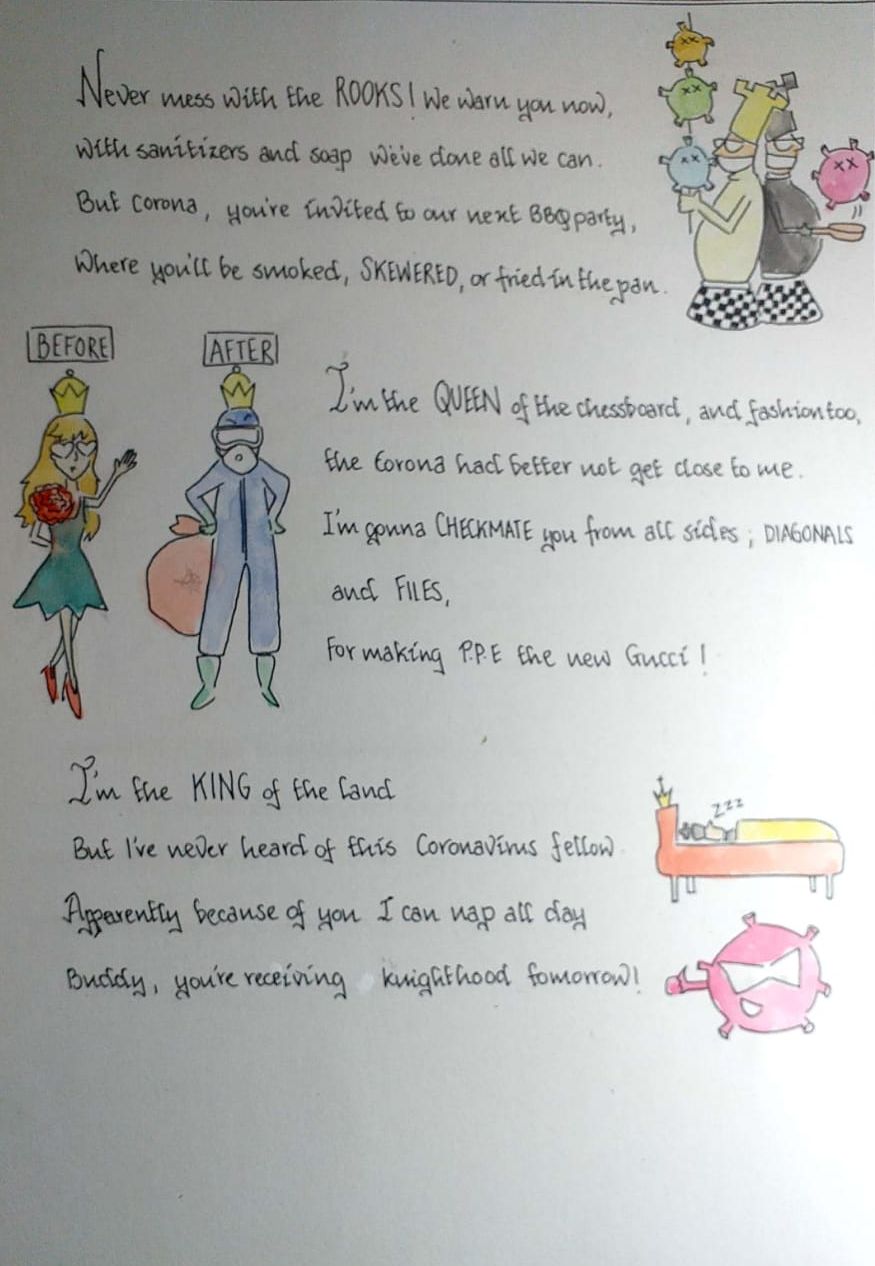 Never mess with the ROOKS! We warn you now,
with sanitizers and soap we've done all we can.
But Corona, you're invited to our next BBQ party,
Where you'll be smoked, SKEWERED, or fried in the pan.
BEFORE
AFTER
I'm the QUEEN of the chessboard, and fashion too,
the Corona had better not get close to me.
I'm gonna CHECKMATE you from all sides; DIAGONALS
and FILES,
For making P.P.E the new Gucci!
I'm the KING of the land
But I've never heard of this Coronavirus fellow
Apparently because of you I can nap all day
Buddy, you're receiving knighthood tomorrow!
zzz